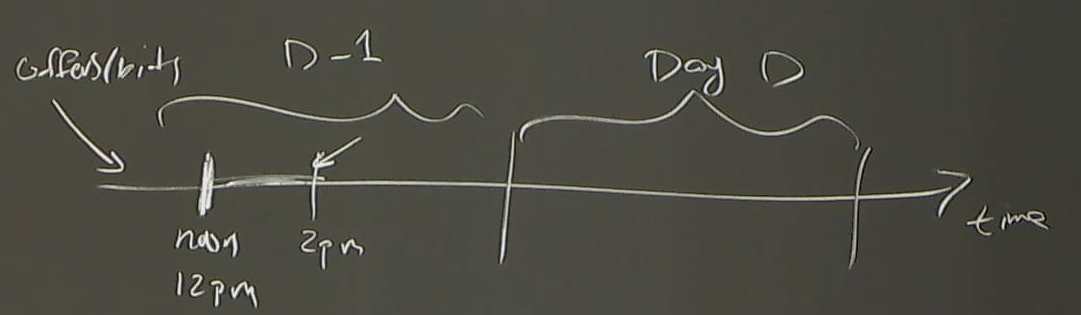 offers/bids
D-1
Day D
noon
12pm
2pm
time